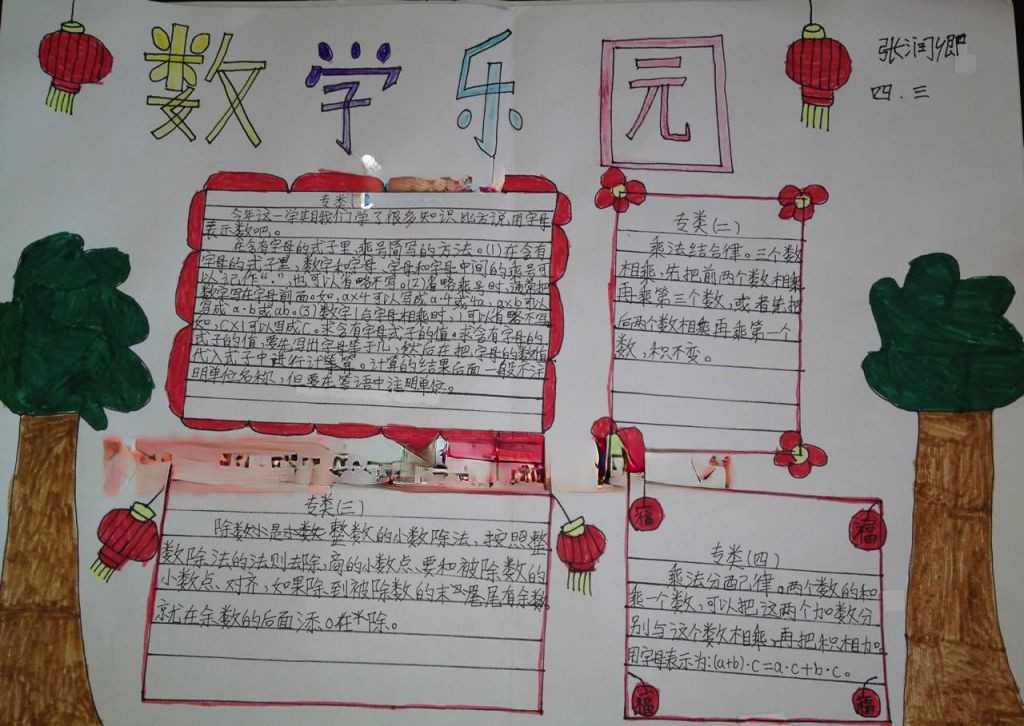 数学乐园
张润卿
四.三
专类(一)
今年这一学期我们学了很多知识比方说用字母
表示数吧。
在含有字母的式子里,乘号简写的方法。(1)在含有
字母的式子里,数字和字母、字母和字母中间的乘号可
以记作“·”,也可以省略不写。(2)省略乘号时,通常把
数字写在字母前面。如,a×4可以写成a·4或4a,a×b可以
写成a·b或ab。(3)数字1与字母相乘时,1可以省略不写
如,C×1可以写成C。求含有字母式子的值。求含有字母的
式子的值,要先写出字母等于几,然后在把字母的数值
代入式子中进行计算。计算的结果后面一般不注
明单位名称,但要在答语中注明单位。
专类(二)
乘法结合律。三个数
相乘,先把前两个数相乘
再乘第三个数,或者先把
后两个数相乘再乘第一个
数,积不变。
专类(三)
除数是整数的小数除法,按照整
数除法的法则去除,商的小数点要和被除数的
小数点对齐,如果除到被除数的末尾有余数
就在余数的后面添0在除。
专类(四)
乘法分配律。两个数的和
乘一个数,可以把这两个加数分
别与这个数相乘,再把积相加
用字母表示为:(a+b)·c=a·c+b·c。
福
福
福
福